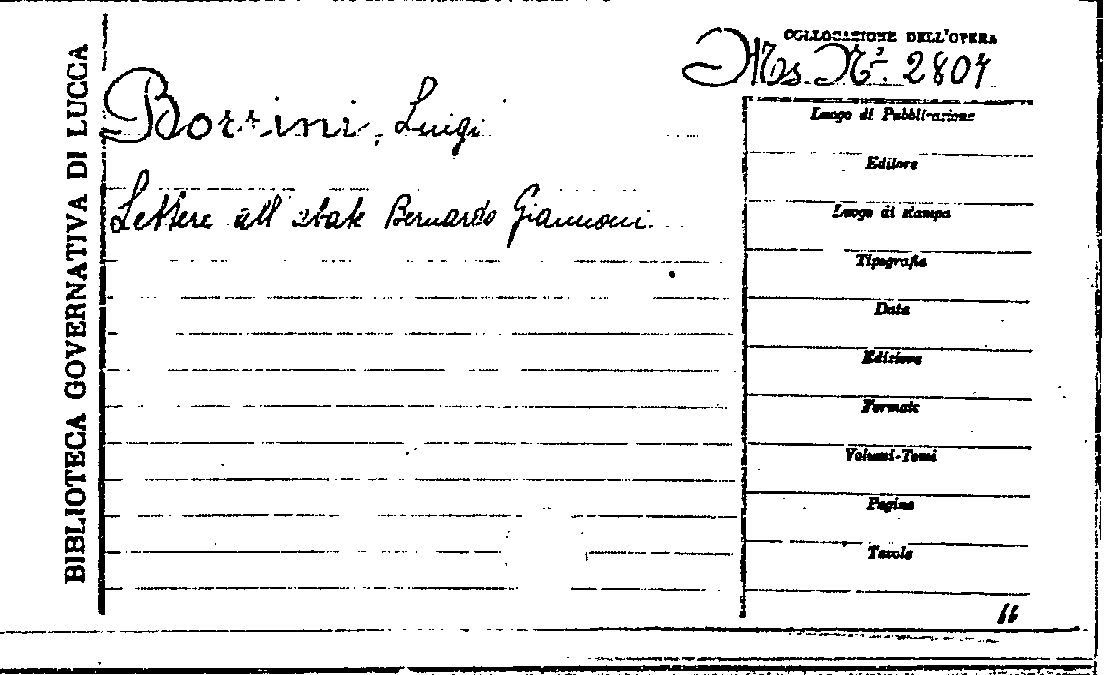 BIBLIOTECA GOVERNATIVA DI LUCCA
COLLOCAZIONE DELL'OPERA
Ms. N.º 2804
Borrini, Luigi
Lettere all'abate Bernardo Giannoni.
Luogo di Pubblicazione
Editore
Luogo di stampa
Tipografia
Data
Edizione
Formato
Volumi-Tomi
Pagine
Tavole